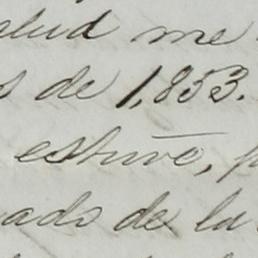 alud me
s de 1,833.
estuve, p
ado de la